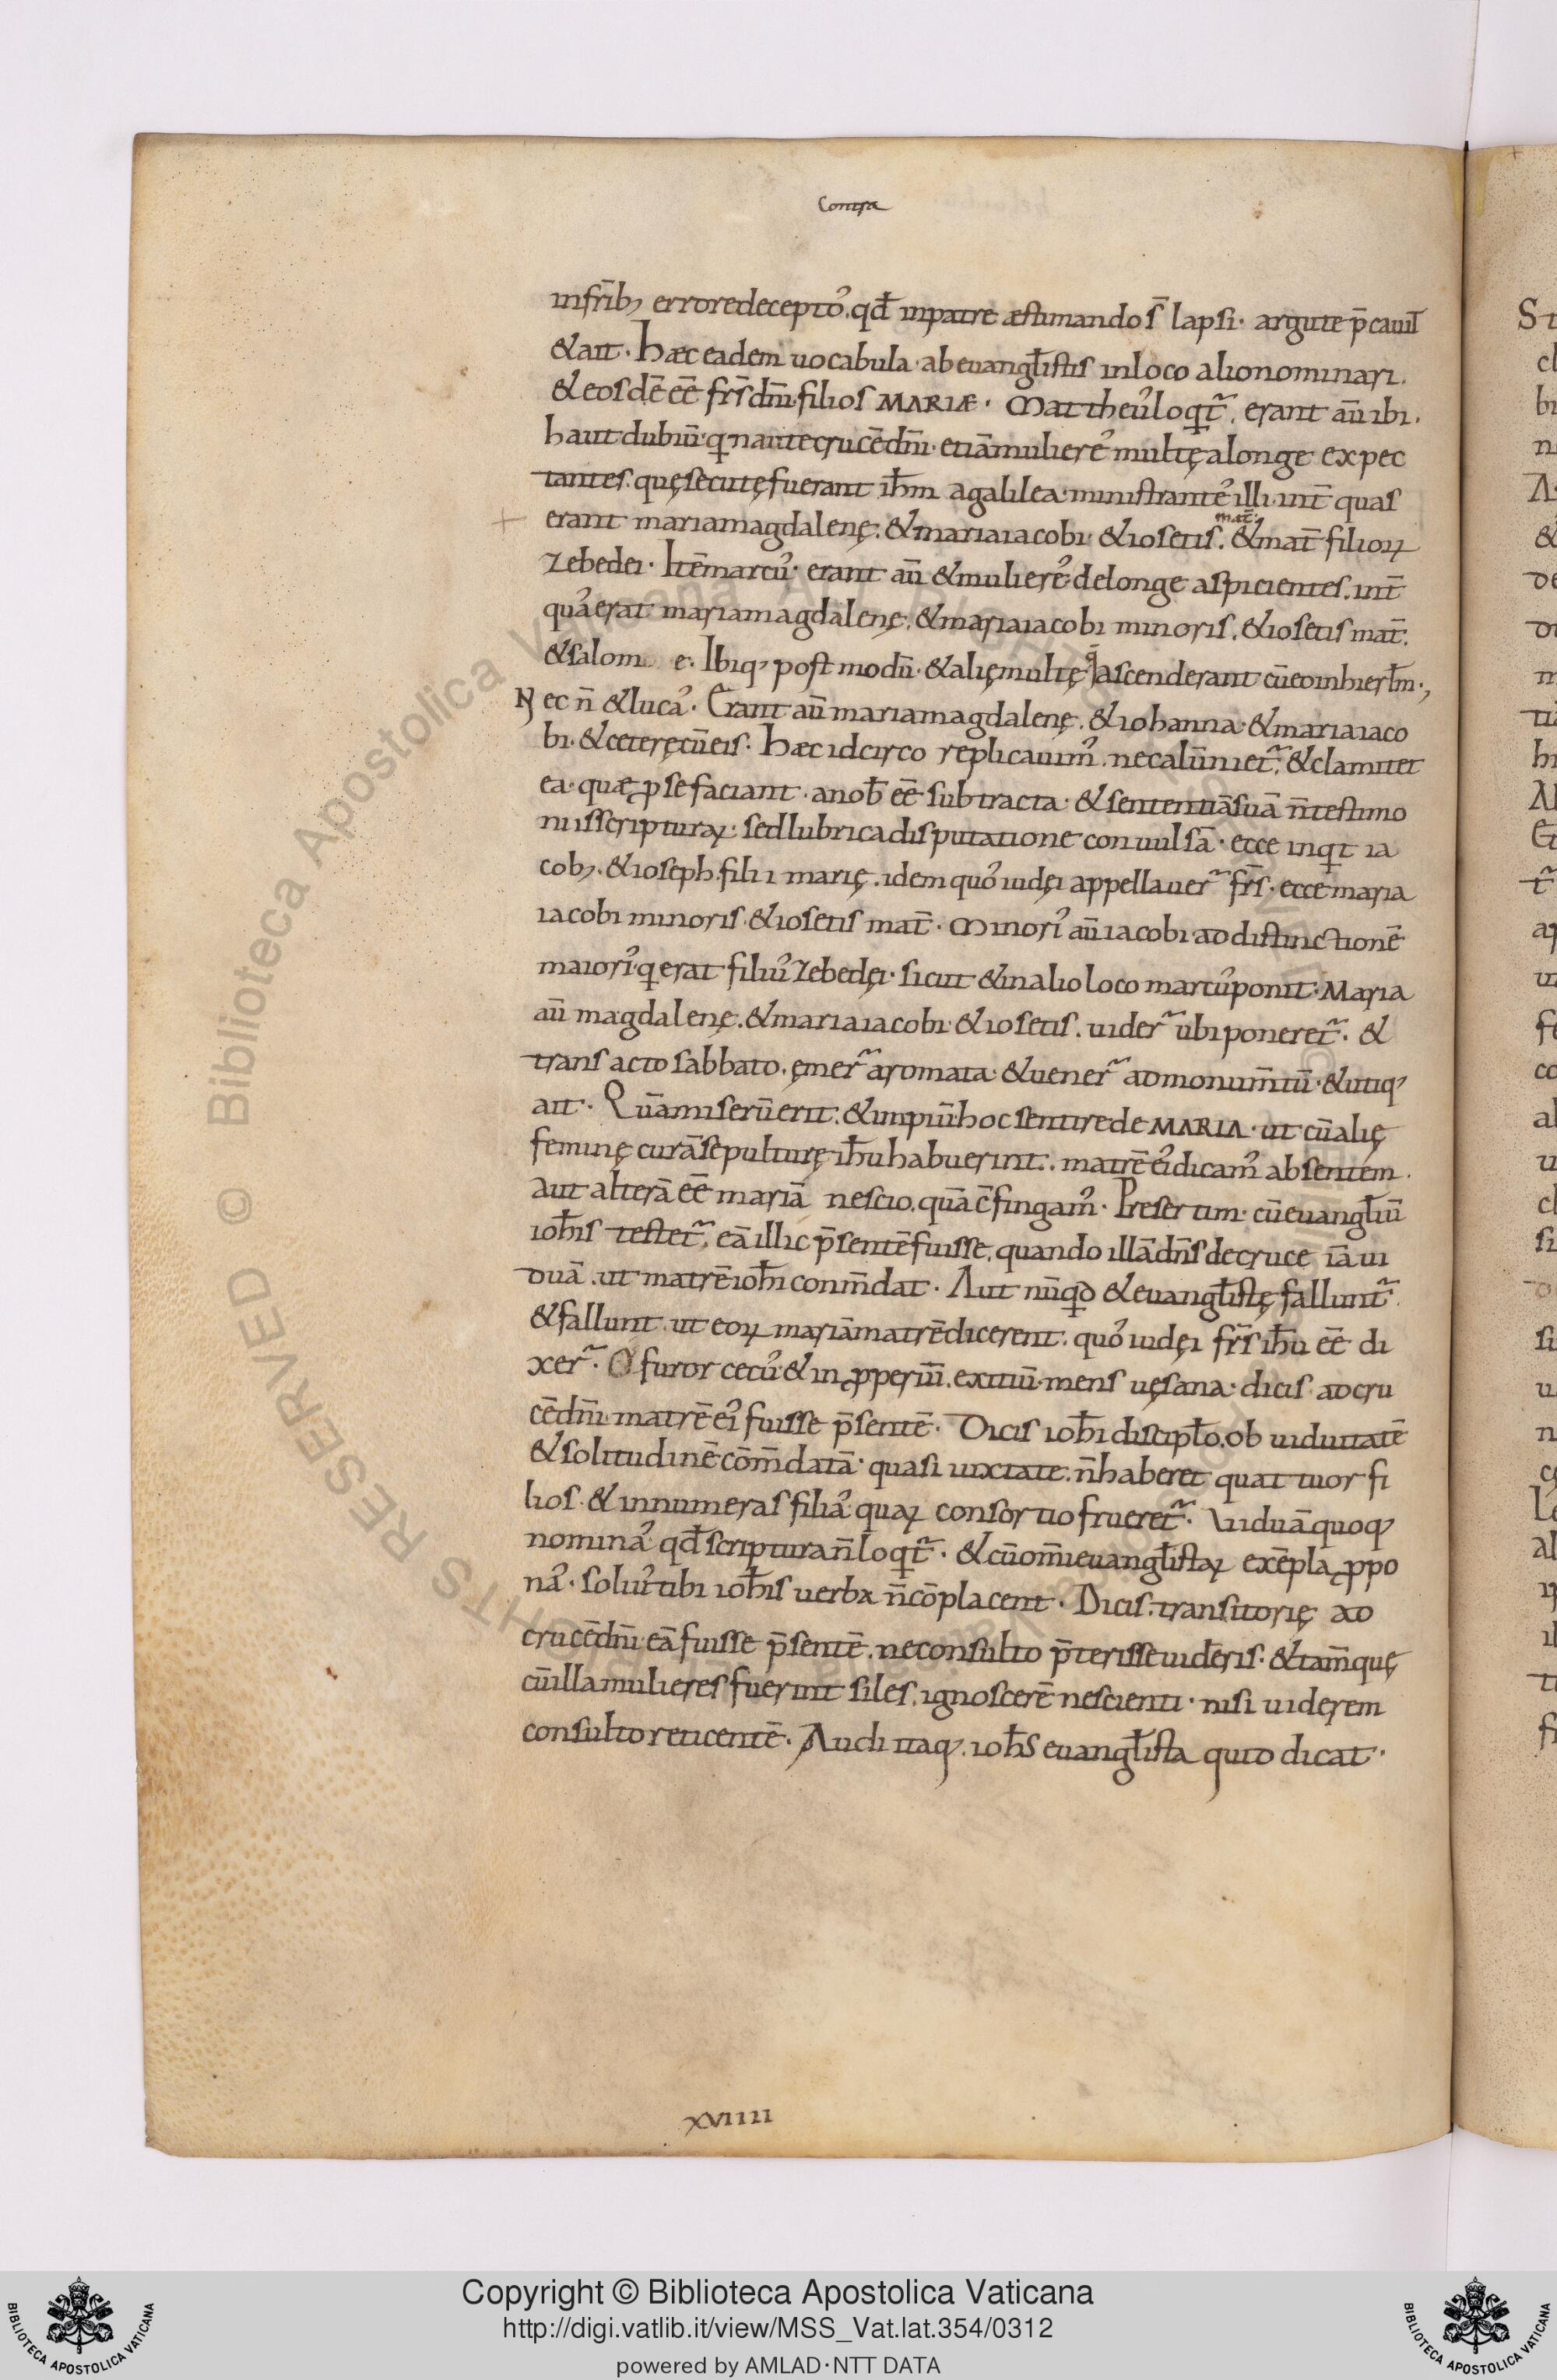 Contra
infrīb; erroredecepto᾽. qđ inpatre æstimando s̄ lapsi· argute p̄cauit̄
&ait· hæc eadem uocabula· abeuangl̄istis inloco alio nominari.
&eosdē eē frs̄ dn̄i· filios MARIÆ· Mattheu᾽ loqt̄. erant aū ibi.
haut dubiū· qn antecrucē dn̄i· etiā muliere᾽ multę alonge expec
tantes. quę secutę fuerant ih̄m agalilea· ministrante᾽ illi· int̄ quas
erant mariamagdalenę. &mariaiacobi· &iosetis. mat̄· &mat̄ filioꝝ
zebedei· Itē marcu᾽· erant aū &muliere᾽ delonge aspicientes. int̄
qua᾽ erat mariamagdalenę. &mariaiacobi minoris. &iosetis mat̄.
&salom e. Ibiq; postmodū· &alię multę q̄ ascenderant cū eo inhierl̄m·;
Nec n̄ &luca᾽· Erant aū mariamagdalenę. &iohanna· &mariaiaco
bi· &ceterę cū eis· hæc idcirco replicauim᾽. necalūniet᷑. &clamitet
ea· quæ ꝓ se faciant· anob̄ eē subtracta· &sententiā suā n̄ testimo
niis scripturaꝝ· sed lubrica disputatione conuulsā· ecce inqt ia
cob;. &ioseph. filii marię. idem quo᾽ iudęi appellauer᷑ frs̄· ecce maria
iacobi minoris· &iosetis mat̄· Minori᾽ aū iacobi· addistinctionē
maiori᾽· q erat filiu᾽ zebedęi· sicut &inalio loco marcu᾽ ponit· Maria
aū magdalenę. &mariaiacobi· &iosetis. uider᷑ ubi poneret᷑. &
transacto sabbato. ęmer᷑ aromata· &uener᷑ admonum̄tū· &utiq;
ait· Quā miserū erit. &impiū· hoc sentire de MARIA· ut cū alię
feminę curā sepulturę ih̄u habuerint.. matrē ei᾽ dicam᾽ absentem.
Aut alterā eē mariā nescio. quā c̄fingam᾽· Presertim· cū euangl̄iū
ioh̄is testet᷑. eā illic p̄sentē fuisse. quando illā dn̄s decruce iā ui
duā. ut matrē ioh̄i conm̄dat· Aut nūqd &euangl̄istę fallunt᷑.
&fallunt. ut eoꝝ mariā matrē dicerent. quo᾽ iudęi frs̄ ih̄u eē di
xer᷑· O furor cecu᾽· &in ꝓpperiū. exitiū· mens uęsana· dicis adcru
cē dn̄i· matrē ei᾽ fuisse p̄sentē· Dicis ioh̄i discipl̄o. ob uiduitatē
&solitudinē cōm̄datā· quasi iuxtate. n̄ haberet quattuor fi
lios· &innumeras filia᾽ quaꝝ consortio frueret᷑· Viduā quoq;
nomina᾽· qđ scriptura n̄ loqt᷑· &cū om̄i euangl̄istaꝝ exēpla ꝓpo
na᾽· soliu᾽ tibi ioh̄is uerba n̄ cōplacent· Dicis. transitorię ad
crucē dn̄i· eā fuisse p̄sentē. neconsulto p̄terisse uideris· &tam̄ quę
cū illa mulieres fuerint siles. ignoscerē nescienti· nisi uiderem
consulto reticentē· Audi itaq;. ioh̄s euangl̄ista quid dicat·
XVIIII
© Biblioteca Apostolica Vaticana
RIGHTS RESERVED
Copyright © Biblioteca Apostolica Vaticana
http://digi.vatlib.it/view/MSS_Vat.lat.354/0312
powered by AMLAD·NTT DATA
BIBLIOTECA APOSTOLICA VATICANA
BIBLIOTECA APOSTOLICA VATICANA